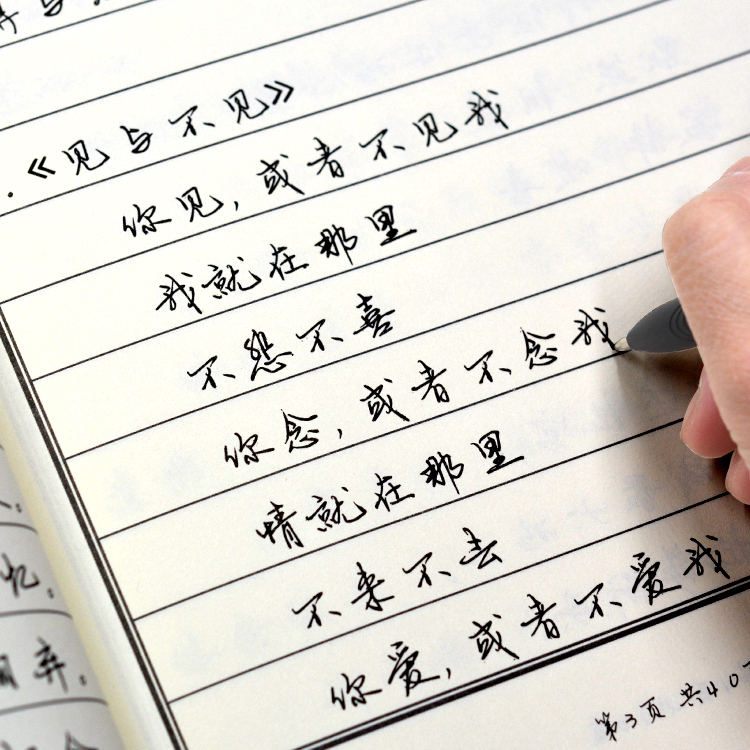 《见与不见》
你见,或者不见我
我就在那里
不怨不喜
你念,或者不念我
情就在那里
不来不去
你爱,或者不爱我
第3页 共40
忆。
弃。